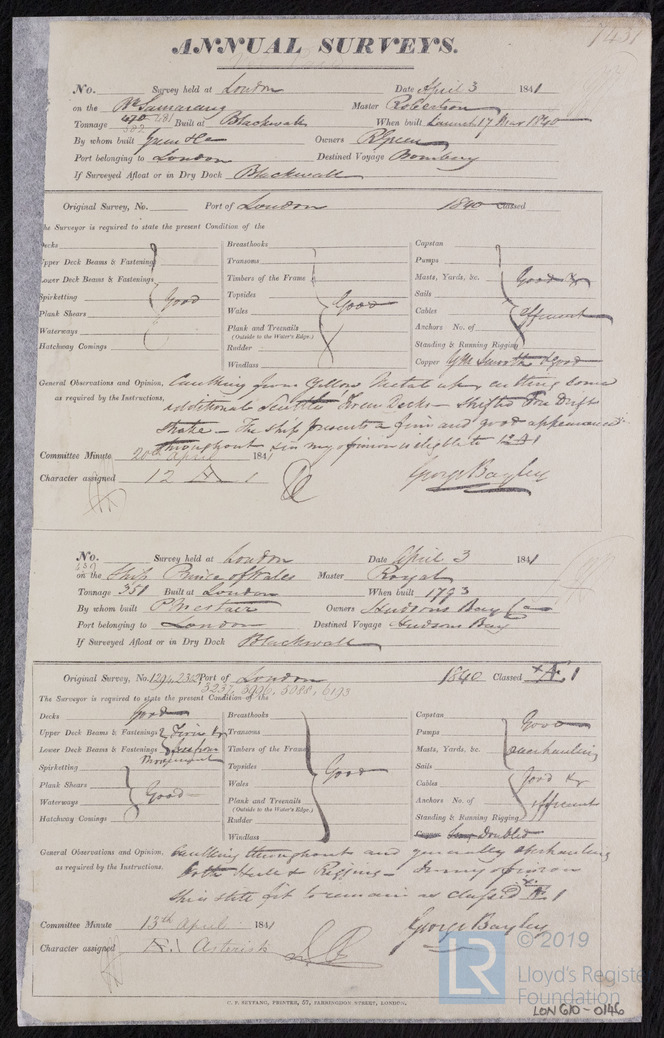 1451
ANNUAL SURVEYS.
No. Survey held at London Date April 3 1841
on the Bk Samarang Master Robertson
Tonnage Built at Blackwall When built Launch 17 Mar 1840
By whom built Green & Co Owners R Green
Port belonging to London Destined Voyage Bombay
If Surveyed Afloat or in Dry Dock Blackwall
Original Survey, No. Port of London 1840 Classed
The Surveyor is required to state the present Condition of the
Decks
Upper Deck Beams & Fastening
Lower Deck Beams & Fastenings
Spirketting Good
Plank Shears
Waterways
Hatchway Comings
Breasthooks
Transoms
Timbers of the Frame
Topsides Good
Wales
Plank and Treenails
(Outside to the Water's Edge.)
Rudder
Windlass
Capstan
Pumps
Masts, Yards, &c. Good &
Sails
Cables efficient
Anchors No. of
Standing & Running Rigging
Copper Good
General Observations and Opinion, Caulking from Yellow Metal up, cutting some
as required by the Instructions, additional Scuttles
The ship presents a firm and good appearance
throughout & in my opinion is eligible to 12 A 1
Committee Minute 20th April 1841
Character assigned 12 A 1 George Bayley
No. Survey held at London Date April 3 1841
on the Ship Prince of Wales Master Royal
Tonnage 351 Built at London When built 1793
By whom built P Mestaer Owners Hudsons Bay Co
Port belonging to London Destined Voyage Hudsons Bay
If Surveyed Afloat or in Dry Dock Blackwall
Original Survey, No. Port of London 1840 Classed
The Surveyor is required to state the present Condition of the
Decks Good
Upper Deck Beams & Fastenings Firm &
Lower Deck Beams & Fastenings free from
Movement
Spirketting
Plank Shears
Waterways Good
Hatchway Comings
Breasthooks
Transoms
Timbers of the Frame
Topsides Good
Wales
Plank and Treenails
(Outside to the Water's Edge.)
Rudder
Windlass
Capstan Good
Pumps
Masts, Yards, &c. overhauling
Sails
Cables Good &
Anchors No. of efficient
Standing & Running Rigging
Copper Doubled
General Observations and Opinion, Caulking throughout and generally overhauling
as required by the Instructions. both Hull & Rigging - In my opinion
she is still fit to remain as classed Æ 1
Committee Minute 13th April 1841 George Bayley
Character assigned Æ.1 Asterisk
C. F. SEYFANG, PRINTER, 57, FARRINGDON STREET, LONDON.
LR © 2019
Lloyd's Register
Foundation
LON 610-0146